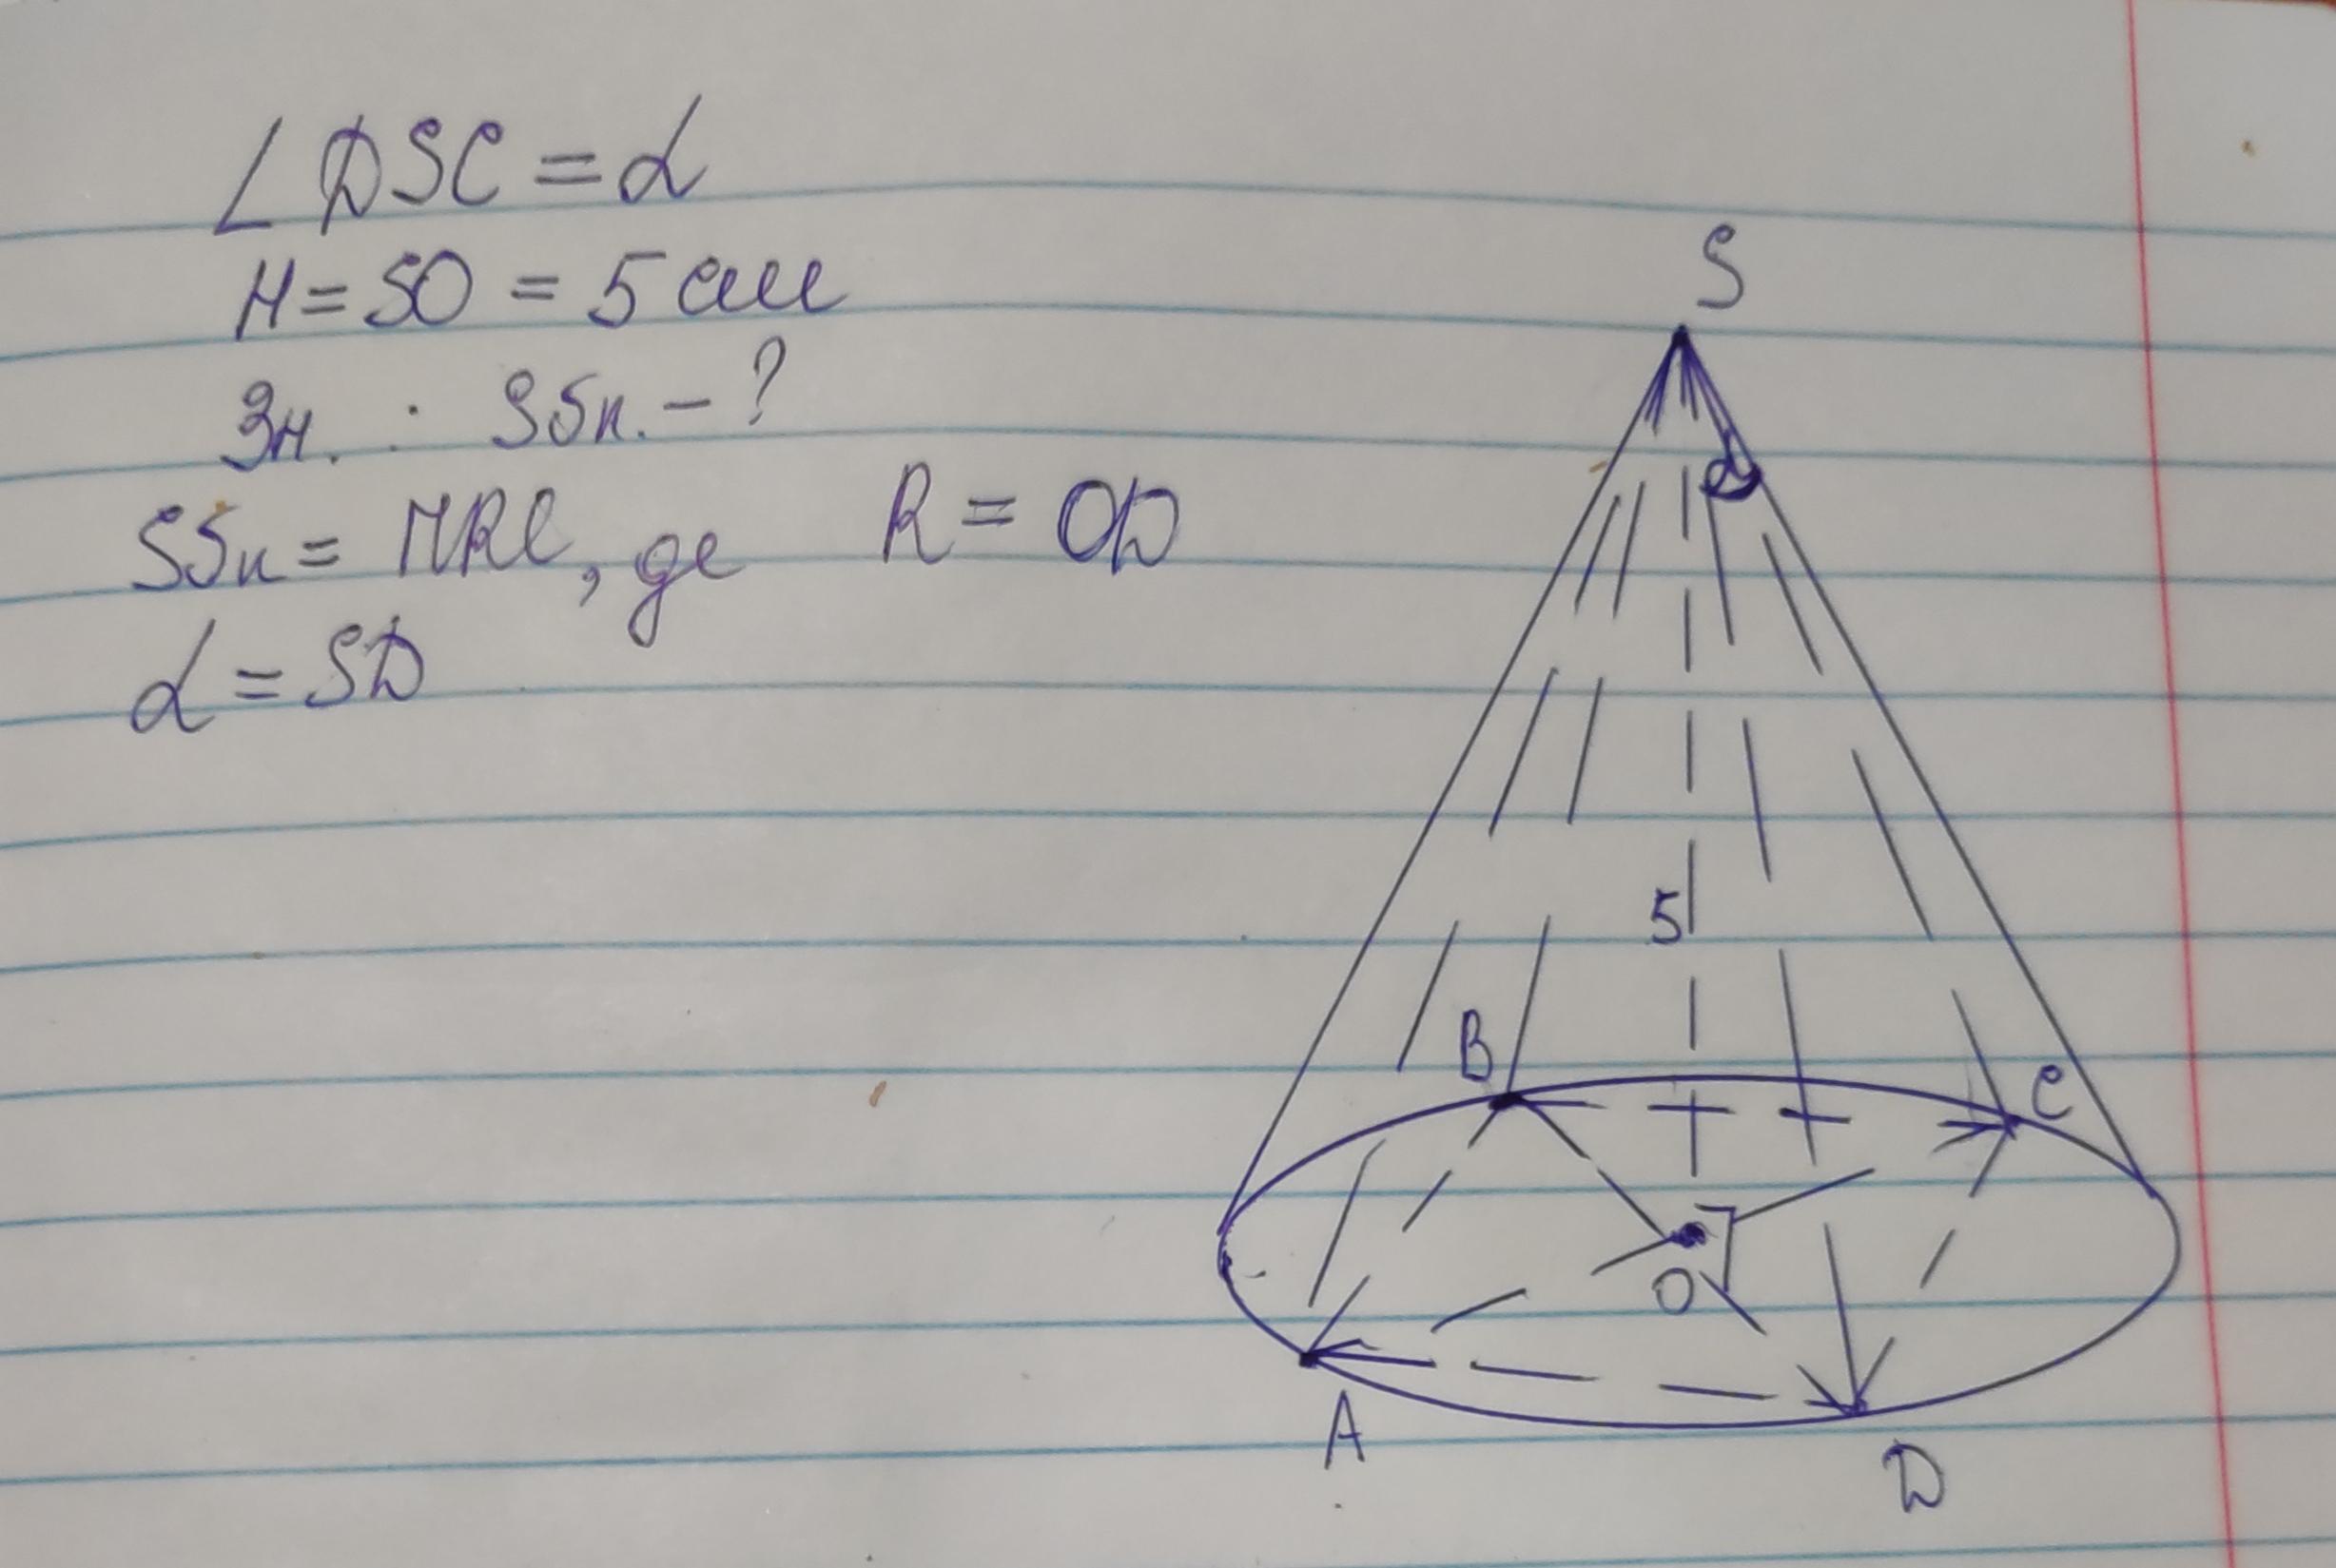 ∠DSC = α
H = SO = 5 см
Зн. : Sбп. - ?
Sбп = πRl, де R = OD
l = SD
S
α
5
B
C
O
A
D